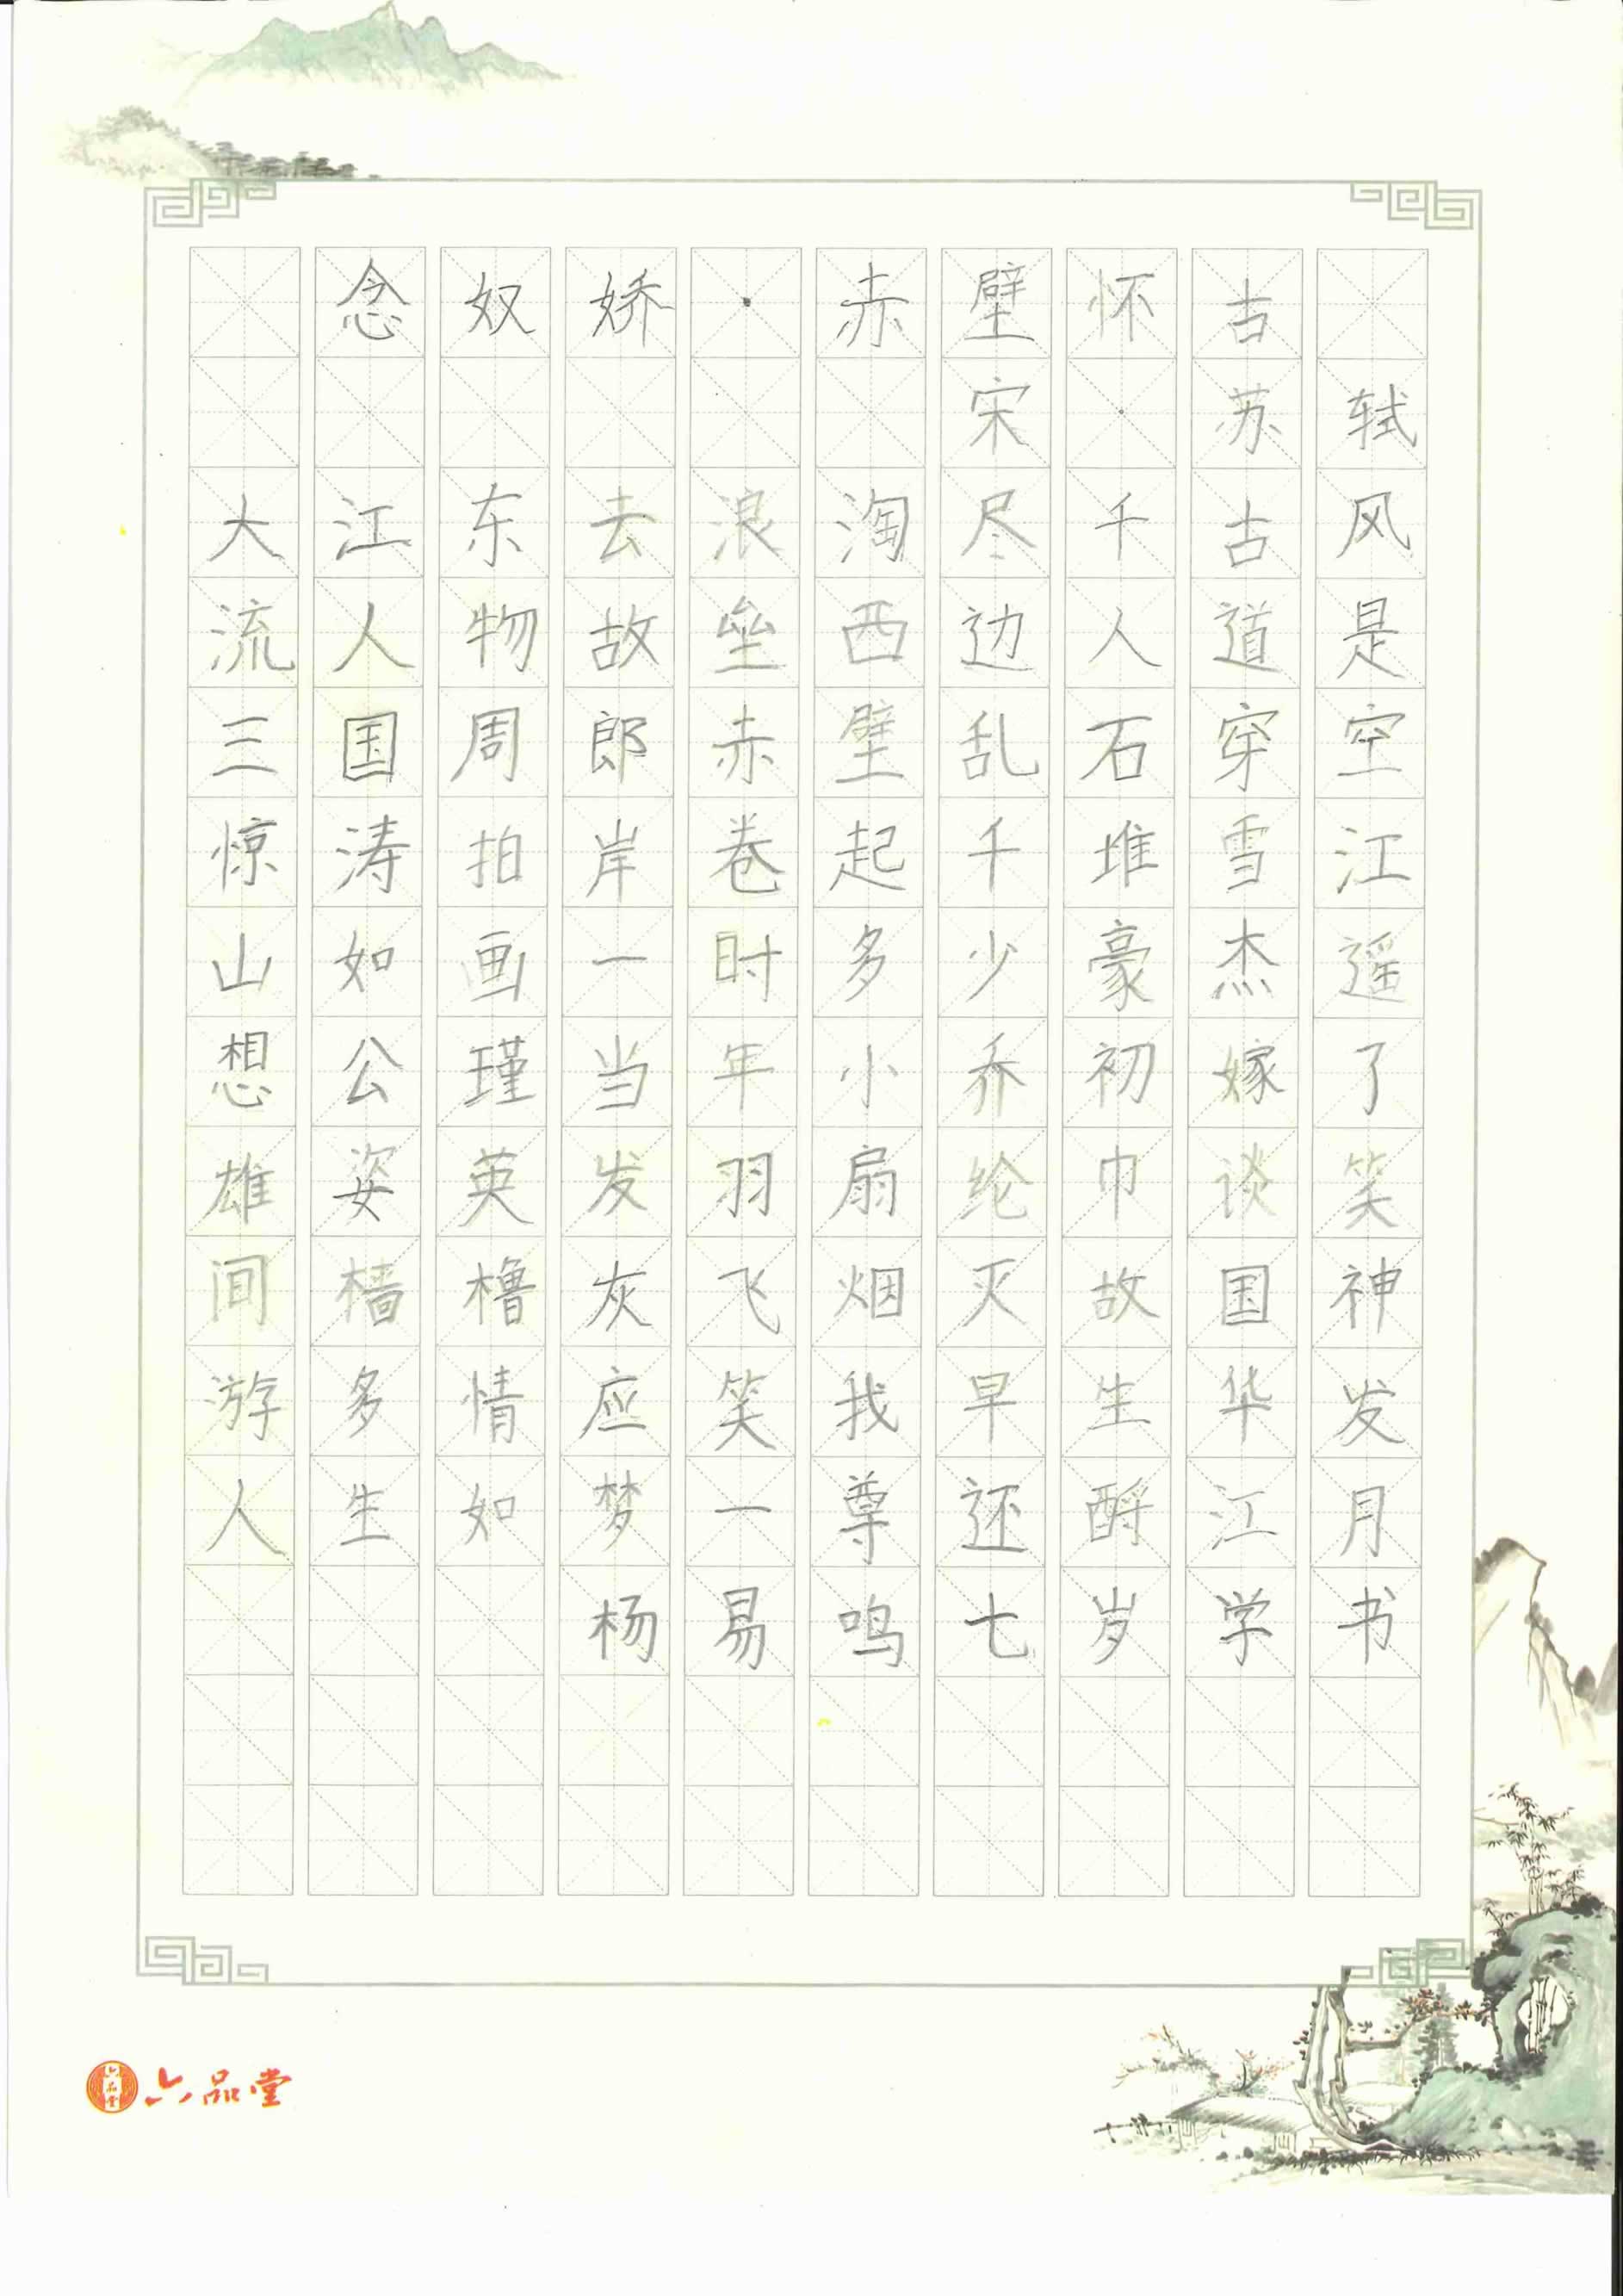 念奴娇·赤壁怀古
宋·苏轼
大江东去浪淘尽千古风
流人物故垒西边人道是
三国周郎赤壁乱石穿空
惊涛拍岸卷起千堆雪江
山如画一时多少豪杰遥
想公瑾当年小乔初嫁了
雄姿英发羽扇纶巾谈笑
间樯橹灰飞烟灭故国神
游多情应笑我早生华发
人生如梦一尊还酹江月
杨易鸣七岁学书
六品堂
六品堂